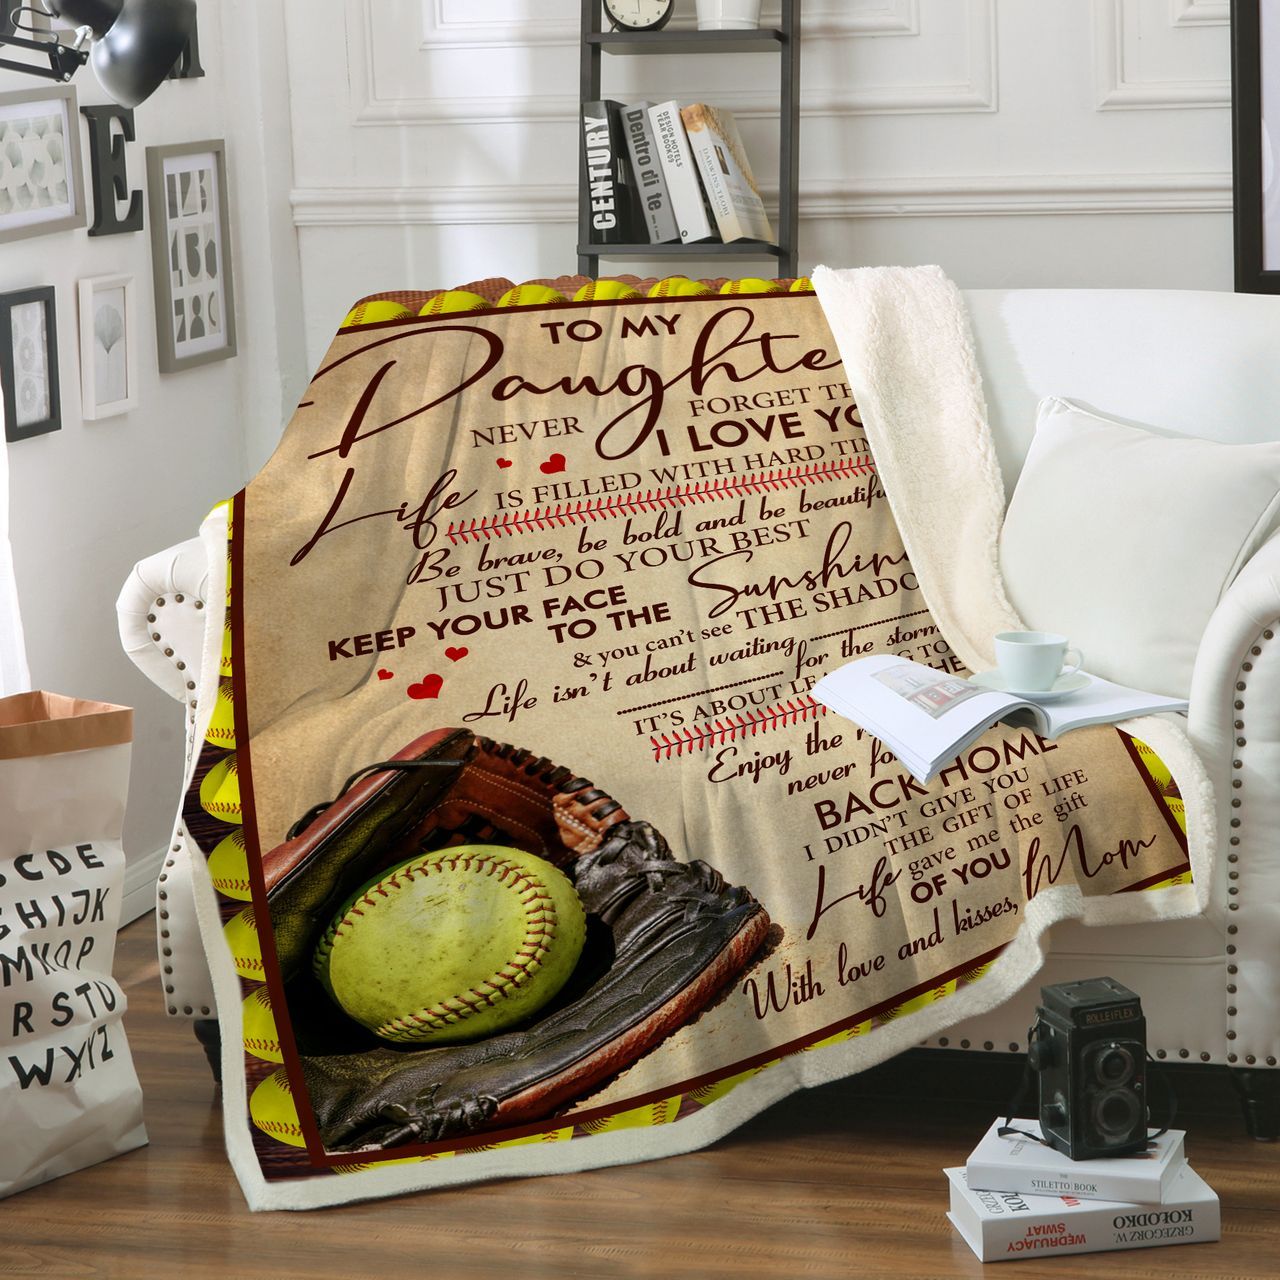 TO MY
Daughte
NEVER FORGET TH
I LOVE YO
Life IS FILLED WITH HARD TIM
Be brave, be bold and be beautifu
JUST DO YOUR BEST
KEEP YOUR FACE
TO THE Sunshin
& you can't see THE SHADO
Life isn't about waiting
for the storm
IT'S ABOUT LEA NG TO
HE
Enjoy the
never fo
BACK HOME
I DIDN'T GIVE YOU
THE GIFT OF LIFE
Life gave me the gift
OF YOU
With love and kisses, Mom
CENTURY
Dentro di te
DESIGN HOTELS
YEAR BOOK09
DARWINS TEORI
E
M
CDE
GHIJK
MNOP
RSTU
WXYZ
ROLLEIFLEX
STILETTO BOOK
GRZEGORZ W.
KOŁODKO
WĘDRUJĄCY
ŚWIAT